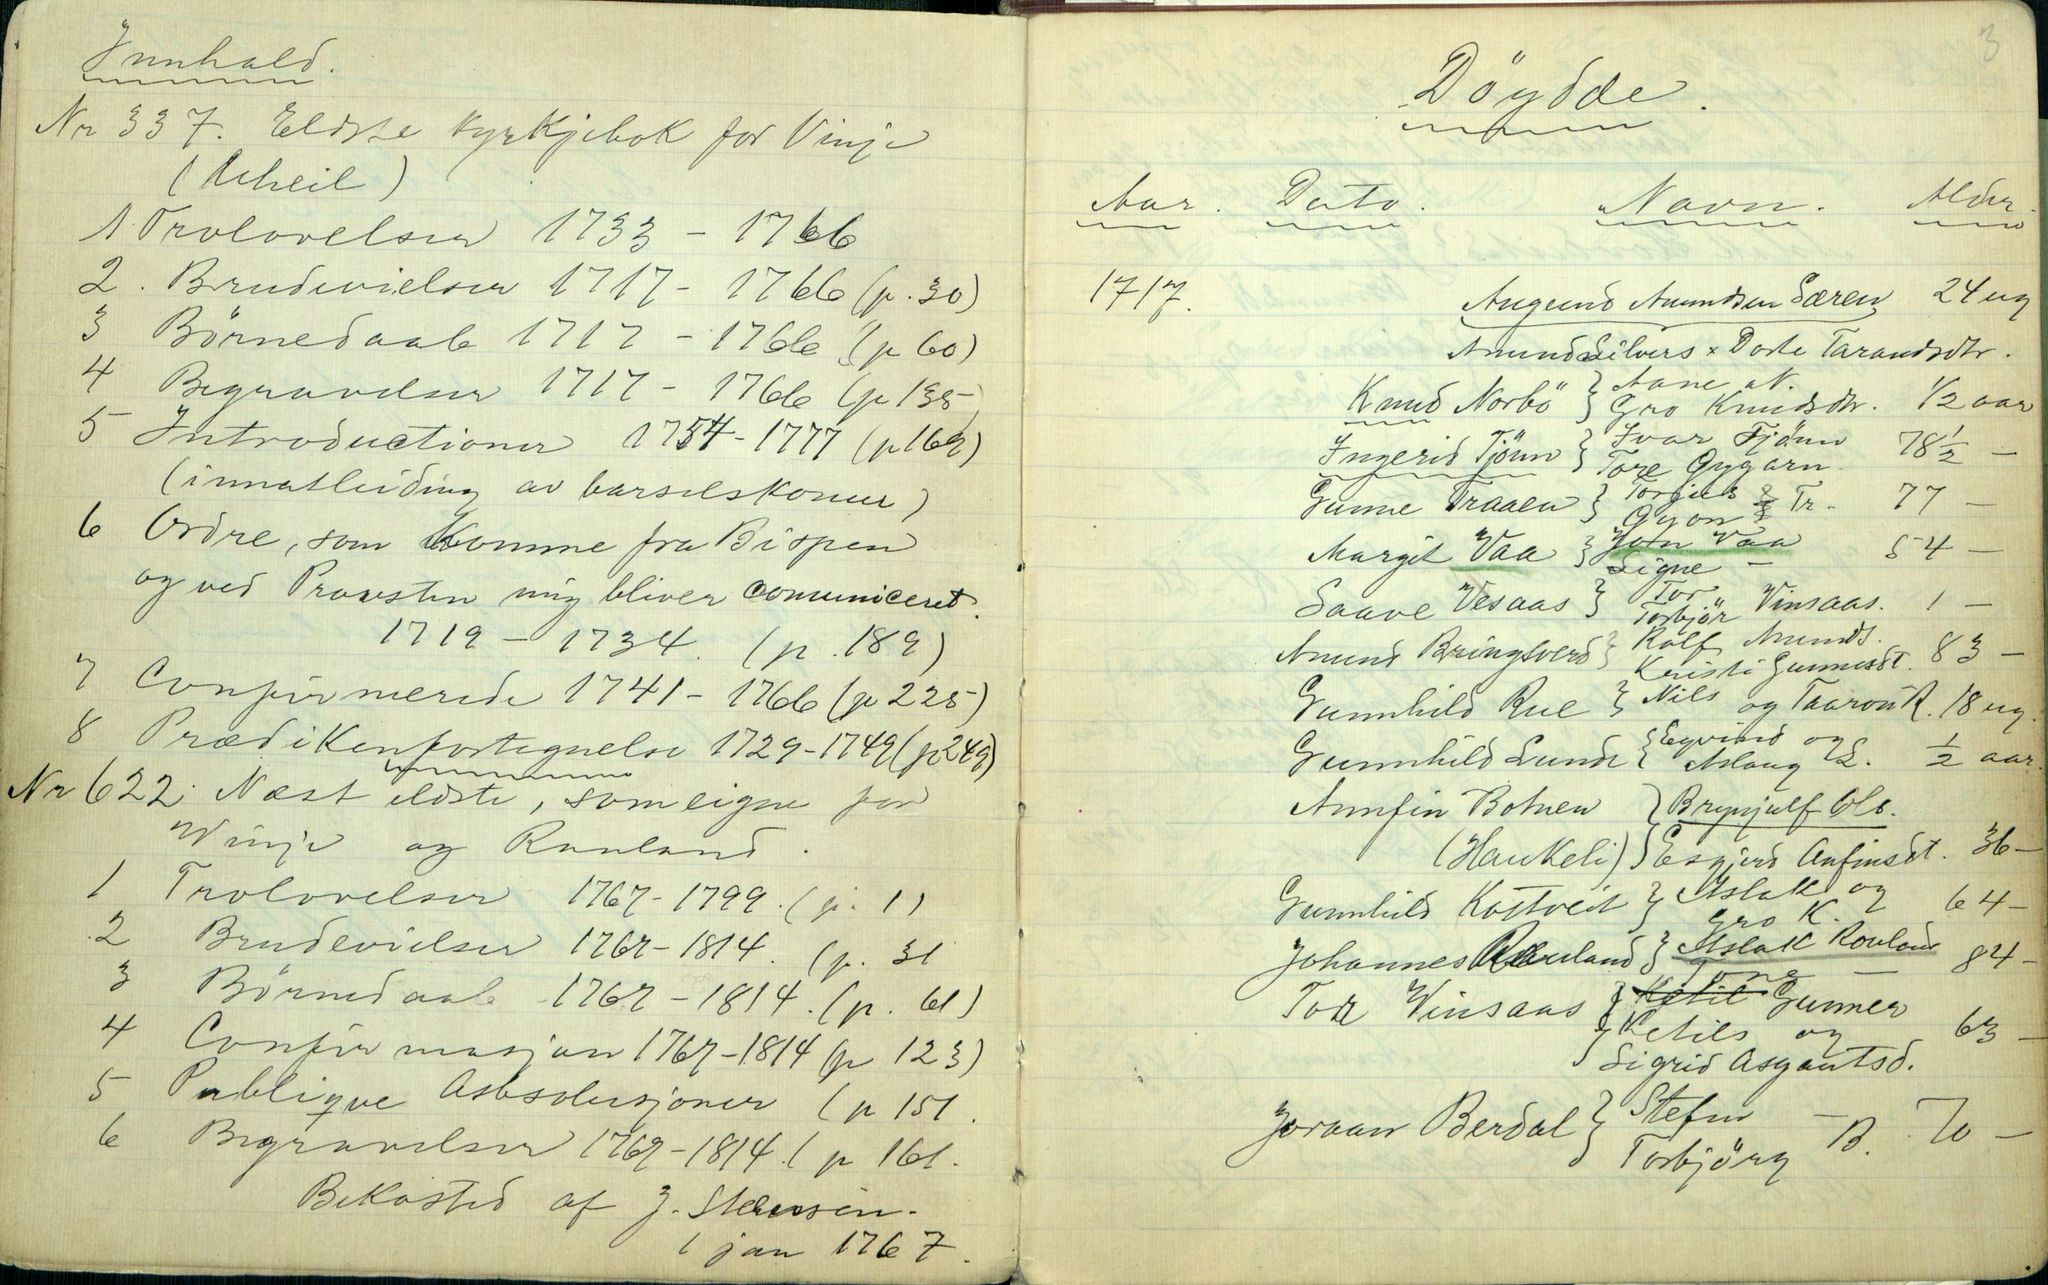 Innhald.
Nr 337. Eldste kyrkjebok for Vinje
(Uheil)
1 Trolovelser 1733 – 1766
2. Brudevielser 1717 – 1766 (p. 30)
3 Börnedaab 1717 – 1766 (p 60)
4 Begravelser 1717 – 1766 (p 135)
5 Introductioner 1754 – 1777 (p 169)
(innatleiding av barselskonur)
6 Ordre, som komme fra Bispen
og ved Provsten mig bliver comuniceret.
1719 – 1734. (p. 189)
7 Confirmerede 1741 – 1766 (p 225)
8 Prædikenfortegnelse 1729 – 1749 (p 249)
Nr 622. Næst eldste, som eigne for
Vinje og Rauland.
1 Trolovelser 1767 – 1799. (p. 1)
2 Brudevielser 1767 – 1814. (p. 31
3 Börnedaab 1767 – 1814. (p. 61)
4 Confirmasjon 1767 – 1814 (p 123)
5 Publique Absolusjoner (p 151.
6 Begravelser 1767 – 1814. ( p 161.
Bekosted af J. Stensen.
1 jan 1767.
3
Döydde.
Aar. Dato. Navn. Alder.
1717. Augund Amundsen Særen 24 ug
Amund Silvers x Dorte Tarandsdtr.
Knud Norbö } Aane N.
Gro Knudsdtr. 1/2 aar
Ingerid Tjönn } Ivar Tjönn
Tore Gygarn 78 1/2 –
Gunne Traaen } Torjus
Gyon Tr. 77 –
Margit Vaa } Jon Vaa
Signe – 54 –
Saave Vesaas } Tor
Torbjör Vinsaas. 1 –
Amund Bringsverd } Rolf Amunds.
Kristi Gunnesdt. 83 –
Gunnhild Rue } Nils og Taaron R. 18 ug.
Gunnhild Lunde { Eyvind og
Aslaug L. 1/2 aar.
Annfin Botnen } Brynjulf Ols.
(Haukeli) } Esgjerd Anfinsdt. 36 –
Gunnhild Kostveit } Aslak og
Gro K. 64 –
Johannes Rauland } Aslak Rauland
Tone – 84 –
Tor Vinsaas } Ketil Gunner
} Ketils og 63 –
Sigrid Asgautsd.
Joraan Berdal } Stefen
Torbjörg – B. 70 –